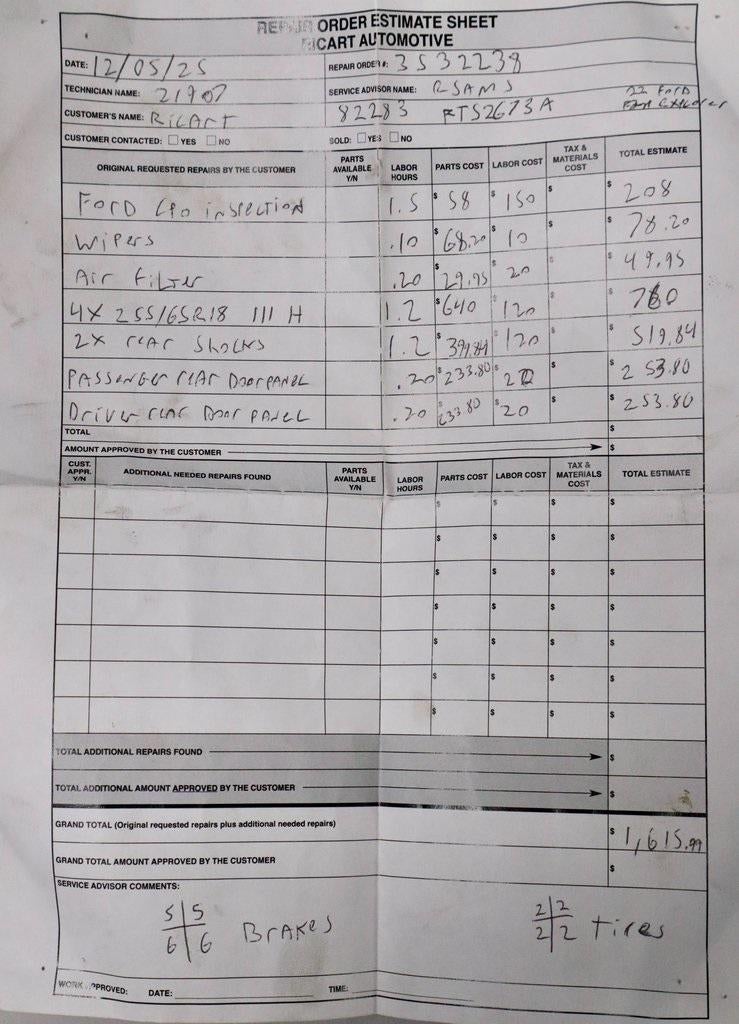 REPAIR ORDER ESTIMATE SHEET
RICART AUTOMOTIVE
DATE: 12/05/25 REPAIR ORDER #: 3532238
TECHNICIAN NAME: 21907 SERVICE ADVISOR NAME: RSAMS 22 Ford
CUSTOMER'S NAME: RICART 82283 RTS2673A Explorer
CUSTOMER CONTACTED: YES NO SOLD: YES NO
ORIGINAL REQUESTED REPAIRS BY THE CUSTOMER PARTS AVAILABLE Y/N LABOR HOURS PARTS COST LABOR COST TAX & MATERIALS COST TOTAL ESTIMATE
FORD CPO inSPECTION 1.5 $ 58 $ 150 $ $ 208
Wipers .10 $ 68.20 $ 10 $ $ 78.20
Air Filter .20 $ 29.95 $ 20 $ $ 49.95
4X 255/65R18 111 H 1.2 $ 640 $ 120 $ $ 760
2X rear Shocks 1.2 $ 399.84 $ 120 $ $ 519.84
PASSENGER rear Door PANEL .20 $ 233.80 $ 20 $ $ 253.80
Driver rear Door PANEL .20 $ 233.80 $ 20 $ $ 253.80
TOTAL $
AMOUNT APPROVED BY THE CUSTOMER $
CUST. APPR. Y/N ADDITIONAL NEEDED REPAIRS FOUND PARTS AVAILABLE Y/N LABOR HOURS PARTS COST LABOR COST TAX & MATERIALS COST TOTAL ESTIMATE
$ $ $ $
$ $ $ $
$ $ $ $
$ $ $ $
$ $ $ $
$ $ $ $
$ $ $ $
TOTAL ADDITIONAL REPAIRS FOUND $
TOTAL ADDITIONAL AMOUNT APPROVED BY THE CUSTOMER $
GRAND TOTAL (Original requested repairs plus additional needed repairs) $ 1,615.99
GRAND TOTAL AMOUNT APPROVED BY THE CUSTOMER $
SERVICE ADVISOR COMMENTS:
5 | 5 2 | 2
6 | 6 BRAKES 2 | 2 tires
WORK APPROVED: DATE: TIME: